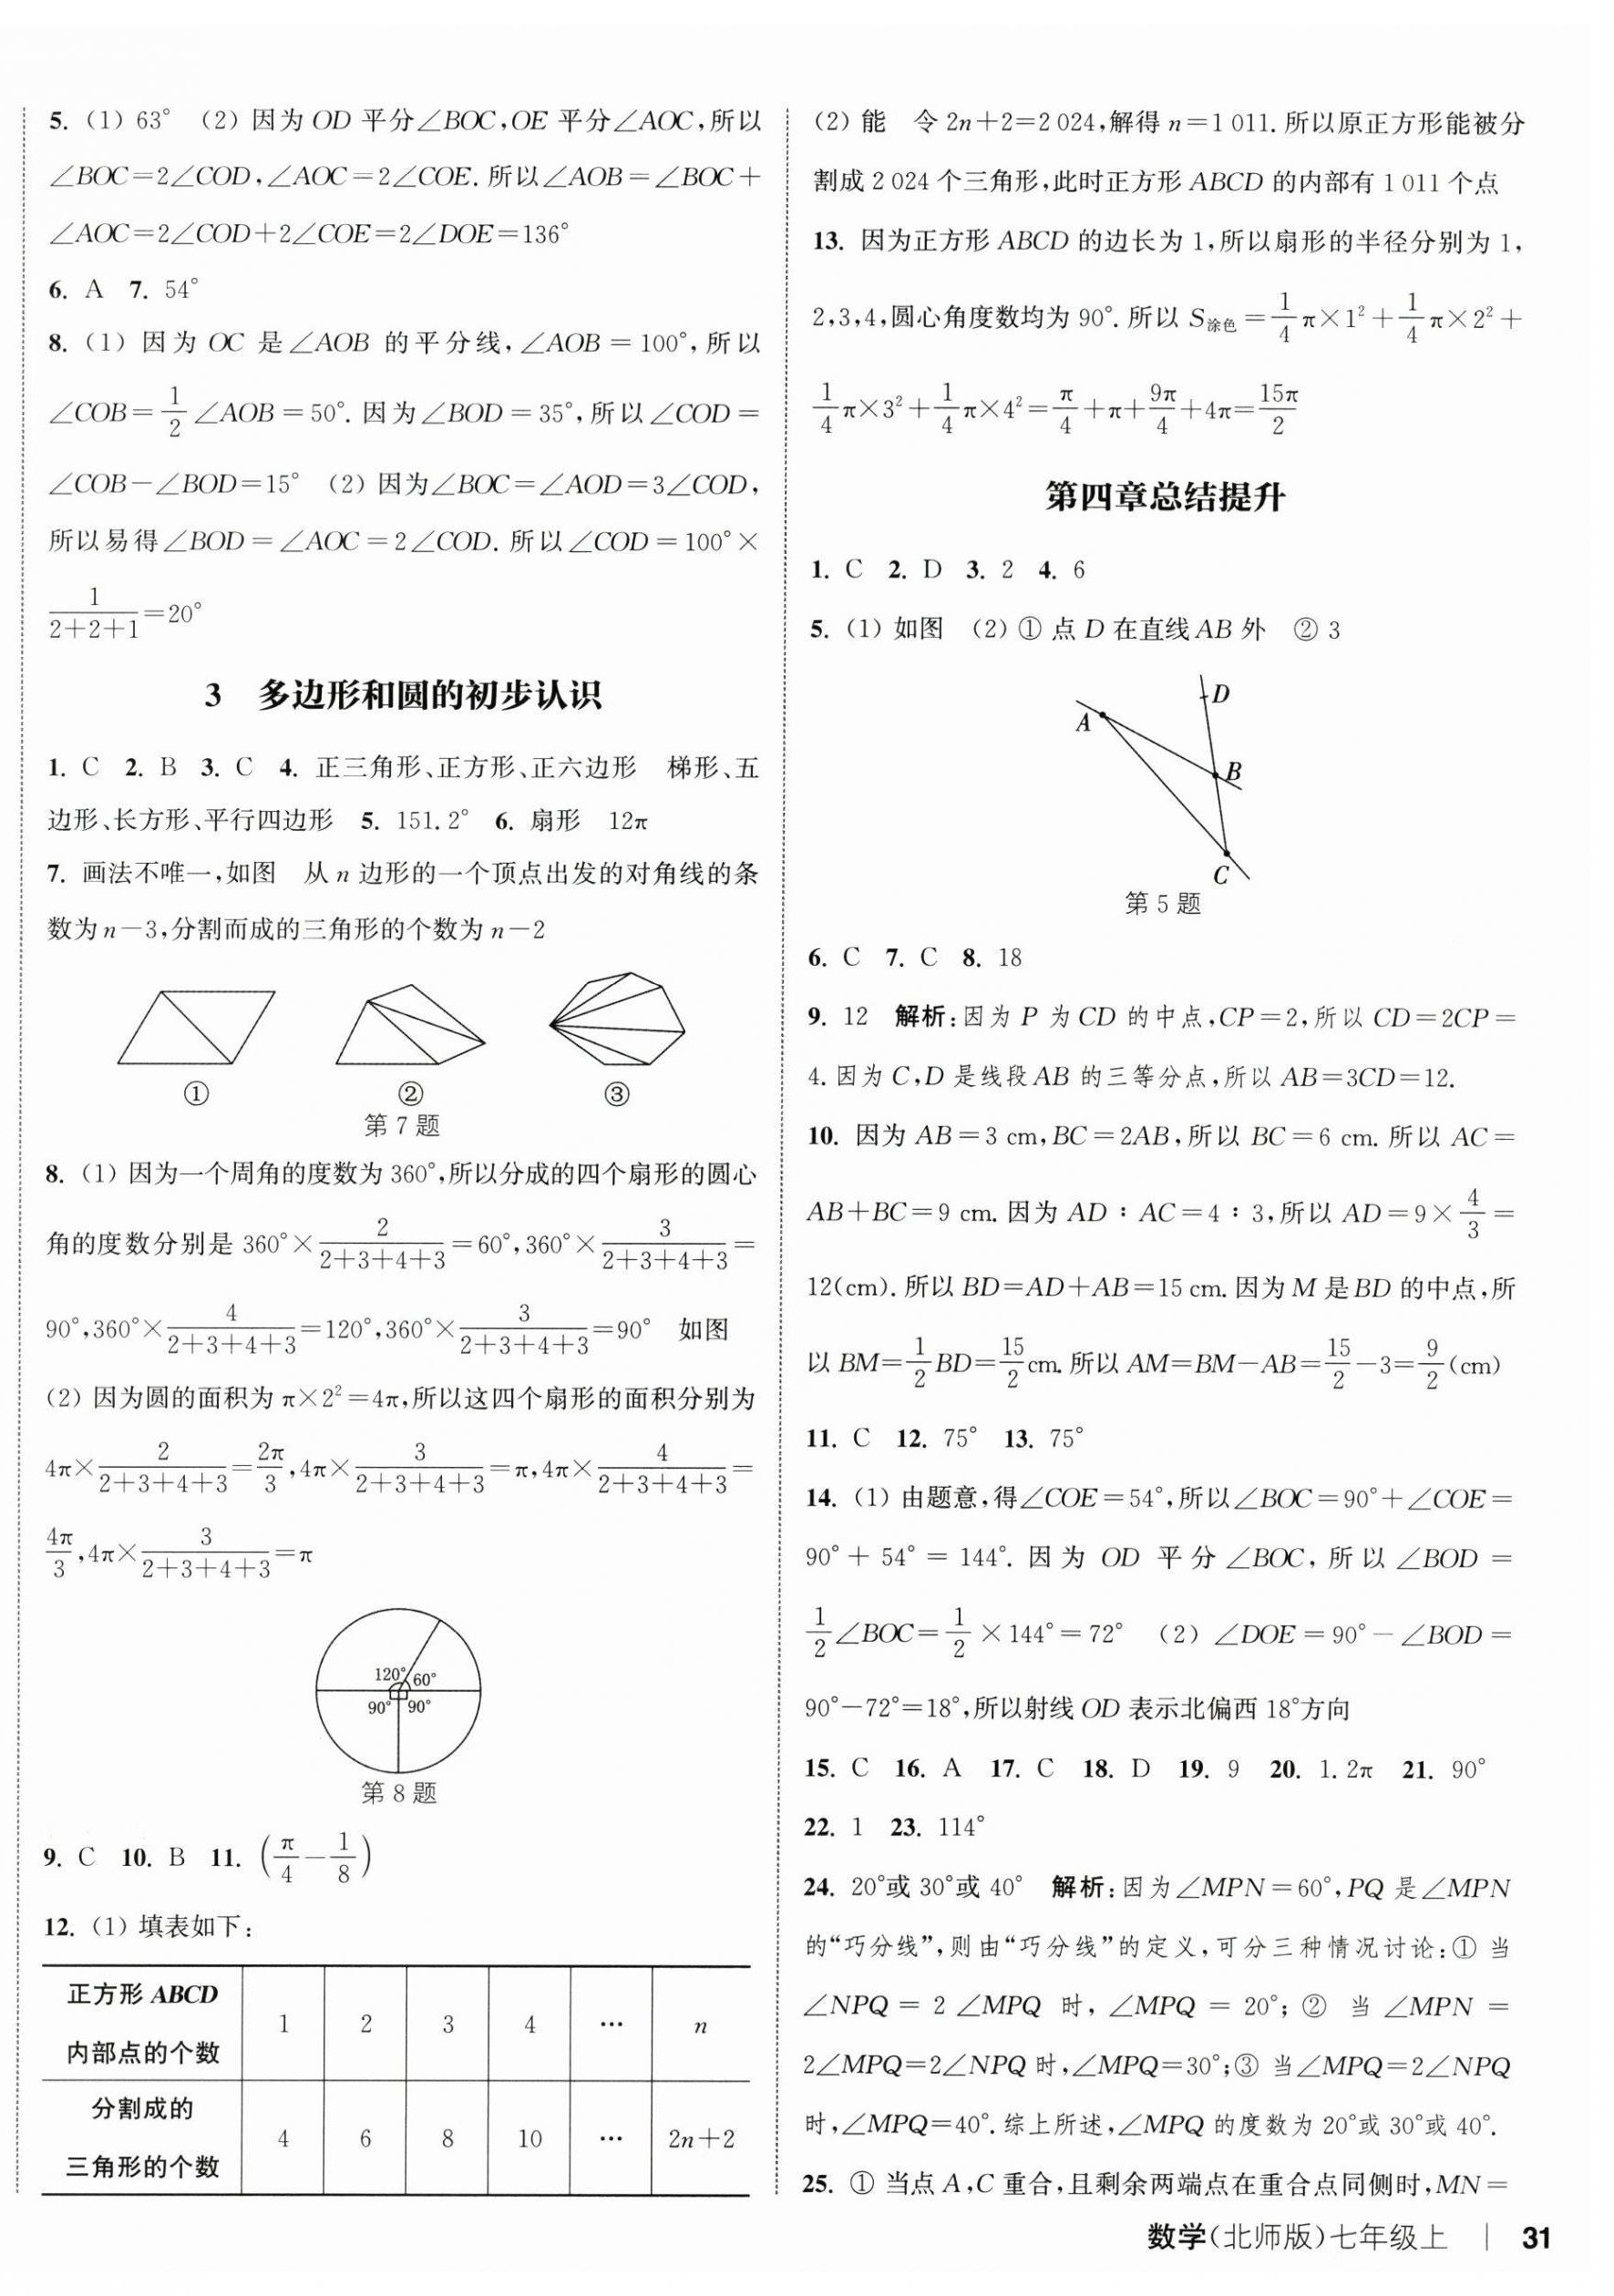 5. (1) 63° (2) 因为 OD 平分∠BOC,OE 平分∠AOC,所以
∠BOC=2∠COD,∠AOC=2∠COE.所以∠AOB=∠BOC+
∠AOC=2∠COD+2∠COE=2∠DOE=136°
6. A 7. 54°
8. (1) 因为 OC 是∠AOB 的平分线,∠AOB=100°,所以
∠COB=1/2∠AOB=50°.因为∠BOD=35°,所以∠COD=
∠COB-∠BOD=15° (2) 因为∠BOC=∠AOD=3∠COD,
所以易得∠BOD=∠AOC=2∠COD.所以∠COD=100°×
1/(2+2+1)=20°
3 多边形和圆的初步认识
1. C 2. B 3. C 4. 正三角形、正方形、正六边形 梯形、五
边形、长方形、平行四边形 5. 151.2° 6. 扇形 12π
7. 画法不唯一,如图 从 n 边形的一个顶点出发的对角线的条
数为 n-3,分割而成的三角形的个数为 n-2
① ② ③
第 7 题
8. (1) 因为一个周角的度数为 360°,所以分成的四个扇形的圆心
角的度数分别是 360°×2/(2+3+4+3)=60°,360°×3/(2+3+4+3)=
90°,360°×4/(2+3+4+3)=120°,360°×3/(2+3+4+3)=90° 如图
(2) 因为圆的面积为 π×2²=4π,所以这四个扇形的面积分别为
4π×2/(2+3+4+3)=2π/3,4π×3/(2+3+4+3)=π,4π×4/(2+3+4+3)=
4π/3,4π×3/(2+3+4+3)=π
120° 60°
90° 90°
第 8 题
9. C 10. B 11. (π/4-1/8)
12. (1) 填表如下:
正方形 ABCD
内部点的个数 1 2 3 4 … n
分割成的
三角形的个数 4 6 8 10 … 2n+2
(2) 能 令 2n+2=2 024,解得 n=1 011.所以原正方形能被分
割成 2 024 个三角形,此时正方形 ABCD 的内部有 1 011 个点
13. 因为正方形 ABCD 的边长为 1,所以扇形的半径分别为 1,
2,3,4,圆心角度数均为 90°.所以 S涂色=1/4π×1²+1/4π×2²+
1/4π×3²+1/4π×4²=π/4+π+9π/4+4π=15π/2
第四章总结提升
1. C 2. D 3. 2 4. 6
5. (1) 如图 (2) ① 点 D 在直线 AB 外 ② 3
D
A
B
C
第 5 题
6. C 7. C 8. 18
9. 12 解析:因为 P 为 CD 的中点,CP=2,所以 CD=2CP=
4.因为 C,D 是线段 AB 的三等分点,所以 AB=3CD=12.
10. 因为 AB=3 cm,BC=2AB,所以 BC=6 cm.所以 AC=
AB+BC=9 cm.因为 AD∶AC=4∶3,所以 AD=9×4/3=
12(cm).所以 BD=AD+AB=15 cm.因为 M 是 BD 的中点,所
以 BM=1/2BD=15/2cm.所以 AM=BM-AB=15/2-3=9/2(cm)
11. C 12. 75° 13. 75°
14. (1) 由题意,得∠COE=54°,所以∠BOC=90°+∠COE=
90°+54°=144°.因为 OD 平分∠BOC,所以∠BOD=
1/2∠BOC=1/2×144°=72° (2) ∠DOE=90°-∠BOD=
90°-72°=18°,所以射线 OD 表示北偏西 18°方向
15. C 16. A 17. C 18. D 19. 9 20. 1.2π 21. 90°
22. 1 23. 114°
24. 20°或 30°或 40° 解析:因为∠MPN=60°,PQ 是∠MPN
的“巧分线”,则由“巧分线”的定义,可分三种情况讨论:① 当
∠NPQ=2∠MPQ 时,∠MPQ=20°;② 当∠MPN=
2∠MPQ=2∠NPQ 时,∠MPQ=30°;③ 当∠MPQ=2∠NPQ
时,∠MPQ=40°.综上所述,∠MPQ 的度数为 20°或 30°或 40°.
25. ① 当点 A,C 重合,且剩余两端点在重合点同侧时,MN=
数学(北师版)七年级上 | 31